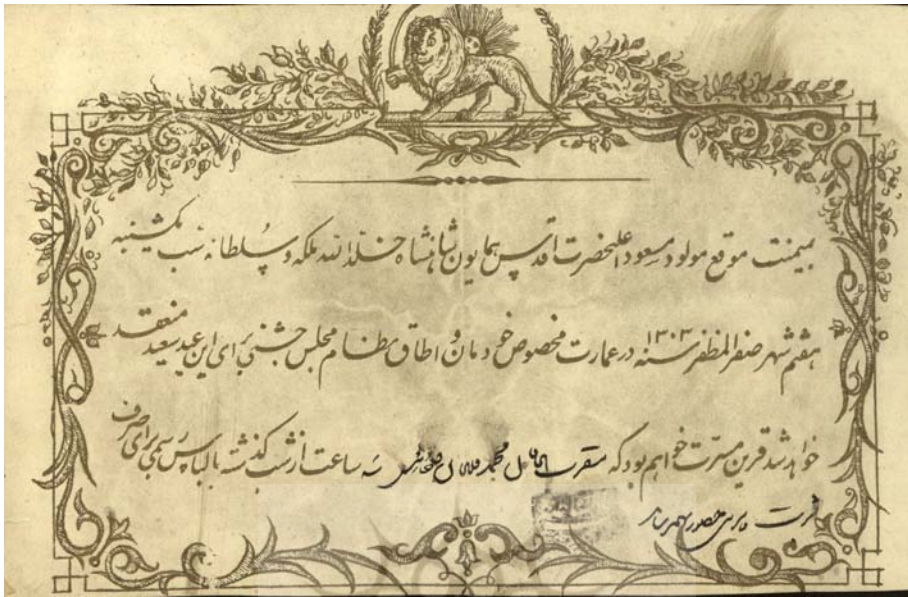 بمیمنت موقع مولود مسعود اعلیحضرت اقدس همایون شاهنشاه خلدالله ملکه و سلطانه شب یکشنبه
هفتم شهر صفرالمظفر سنه ۱۳۰۳ در عمارت مخصوص خودمان و اطاق نظام مجلس جشنی برای این عید سعید منعقد
خواهد شد قرین مسرت خواهم بود که سه ساعت از شب گذشته بالباس رسمی برای صرف
شربت حضور بهمرسانند